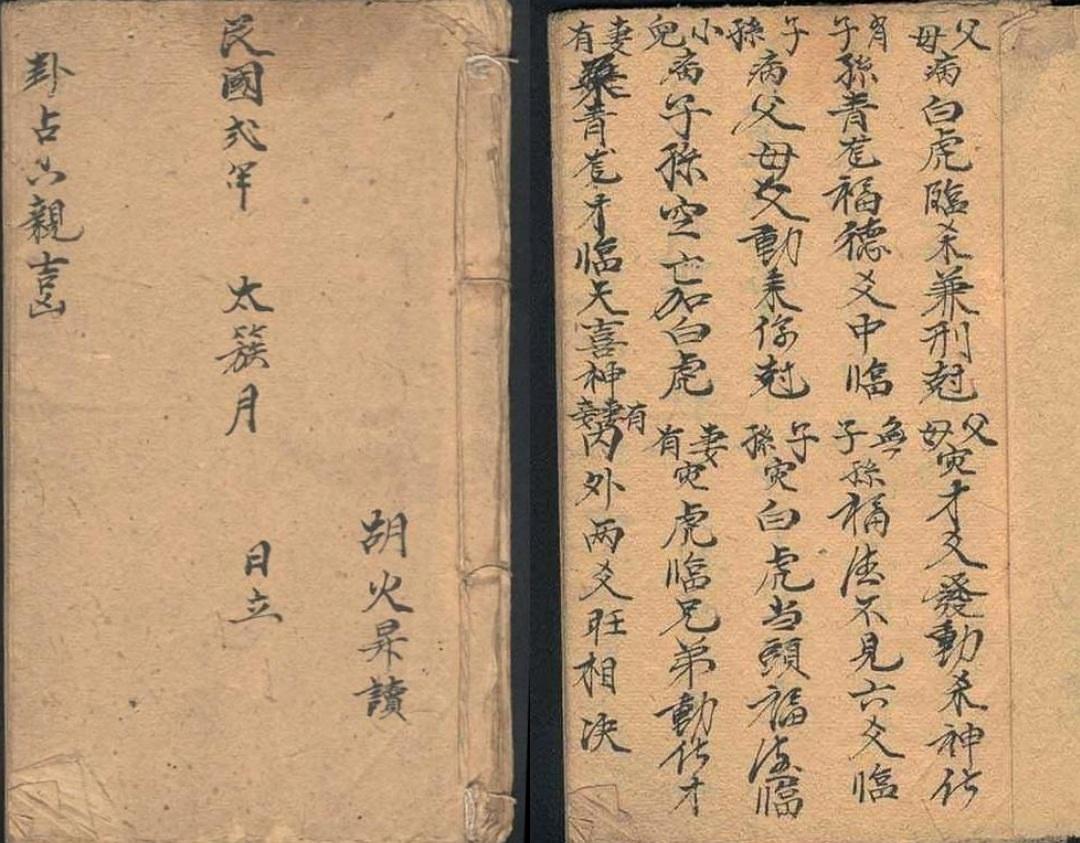 胡火昇讀
民國弍年 太簇月 日立
卦占六親吉凶
父母病白虎臨杀兼刑尅 父母灾才爻發動杀神化
有子孫青竜福德爻中臨 無子孫福法不見六爻臨
子孫病父母爻動來係尅 子孫灾白虎当頭福法臨
小兒病子孫空亡加白虎 妻有灾虎臨兄弟動化才
妻有青竜才臨天喜神 有妻妾内外两爻旺相决